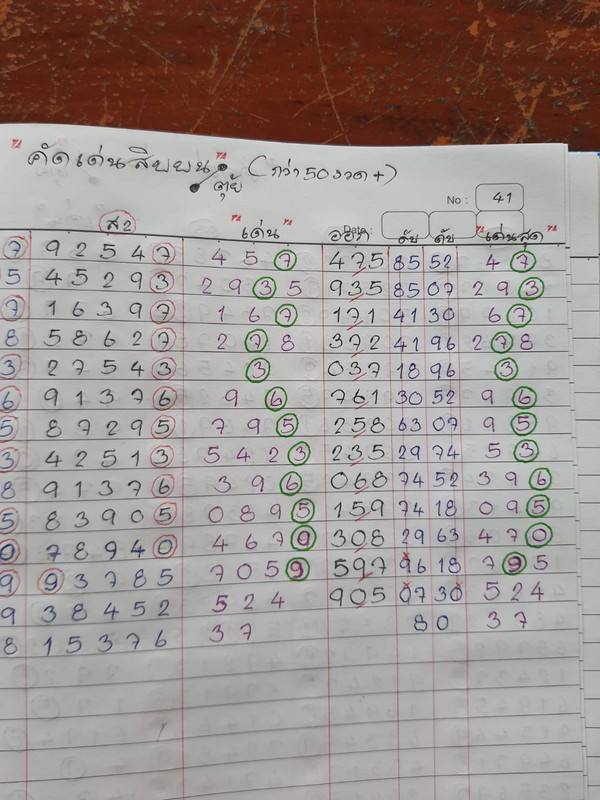 คัดเด่นสิบบน (กว่า 50 งวด +)
ตุ้ย
No : 41
Date :
ส2 เด่น ออก ดับ ดับ เด่นสุด
7 9 2 5 4 7 4 5 7 475 85 52 4 7
5 4 5 2 9 3 2 9 3 5 935 85 07 2 9 3
7 1 6 3 9 7 1 6 7 171 41 30 6 7
8 5 8 6 2 7 2 7 8 372 41 96 2 7 8
3 2 7 5 4 3 3 037 18 96 3
6 9 1 3 7 6 9 6 761 30 52 9 6
5 8 7 2 9 5 7 9 5 258 63 07 9 5
3 4 2 5 1 3 5 4 2 3 235 29 74 5 3
8 9 1 3 7 6 3 9 6 068 74 52 3 9 6
5 8 3 9 0 5 0 8 9 5 159 74 18 0 9 5
0 7 8 9 4 0 4 6 7 308 29 63 4 7 0
9 9 3 7 8 5 7 0 5 9 597 96 18 7 9 5
9 3 8 4 5 2 5 2 4 905 07 30 5 2 4
8 1 5 3 7 6 3 7 80 3 7